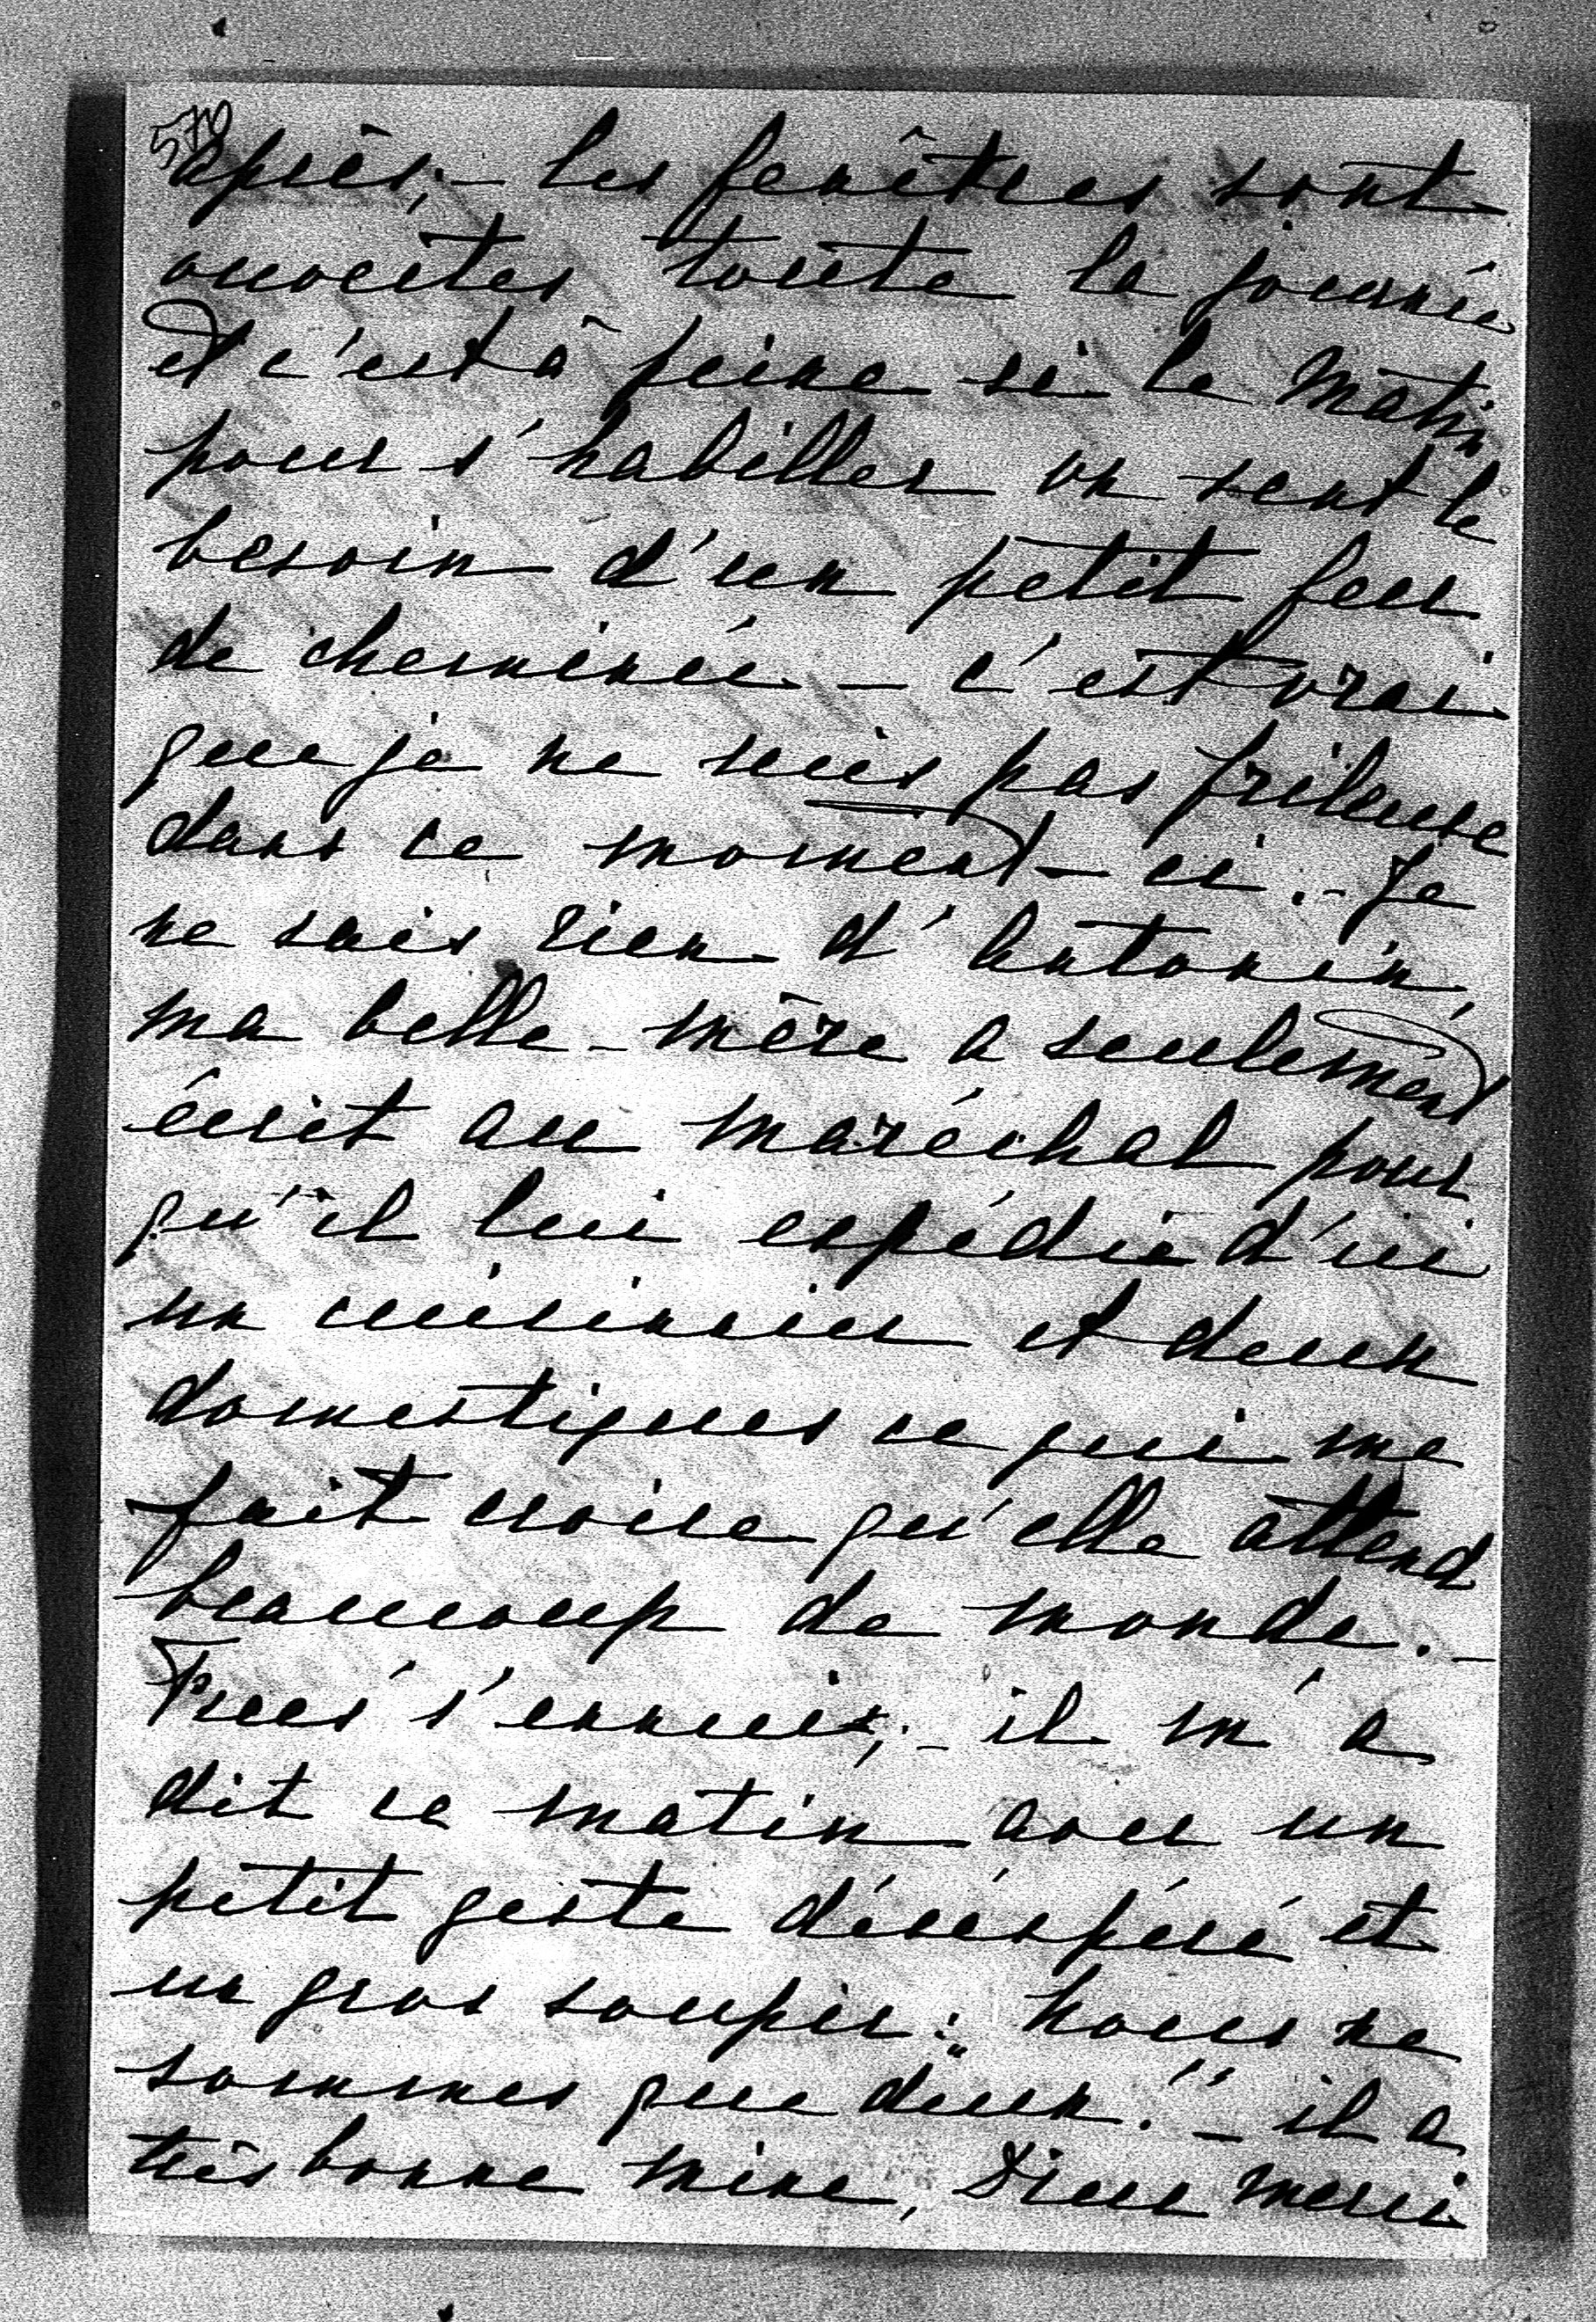 570
après; – les fenêtres sont
ouvertes toute la journée
et c'est à peine si le matin
pour s'habiller on sent le
besoin d'un petit feu
de cheminée – c'est vrai
que je ne suis pas frileuse
dans ce moment-ci. – Je
ne sais rien d'Antonin,
ma belle-mère a seulement
écrit au maréchal pour
qu'il lui expédie d'ici
un cuisinier et deux
domestiques ce qui me
fait croire qu'elle attend
beaucoup de monde. –
s'ennuie; – il m'a
dit ce matin avec un
petit geste désespéré et
un gros soupir: "nous ne
sommes que deux!" – il a
très bonne mine, Dieu merci